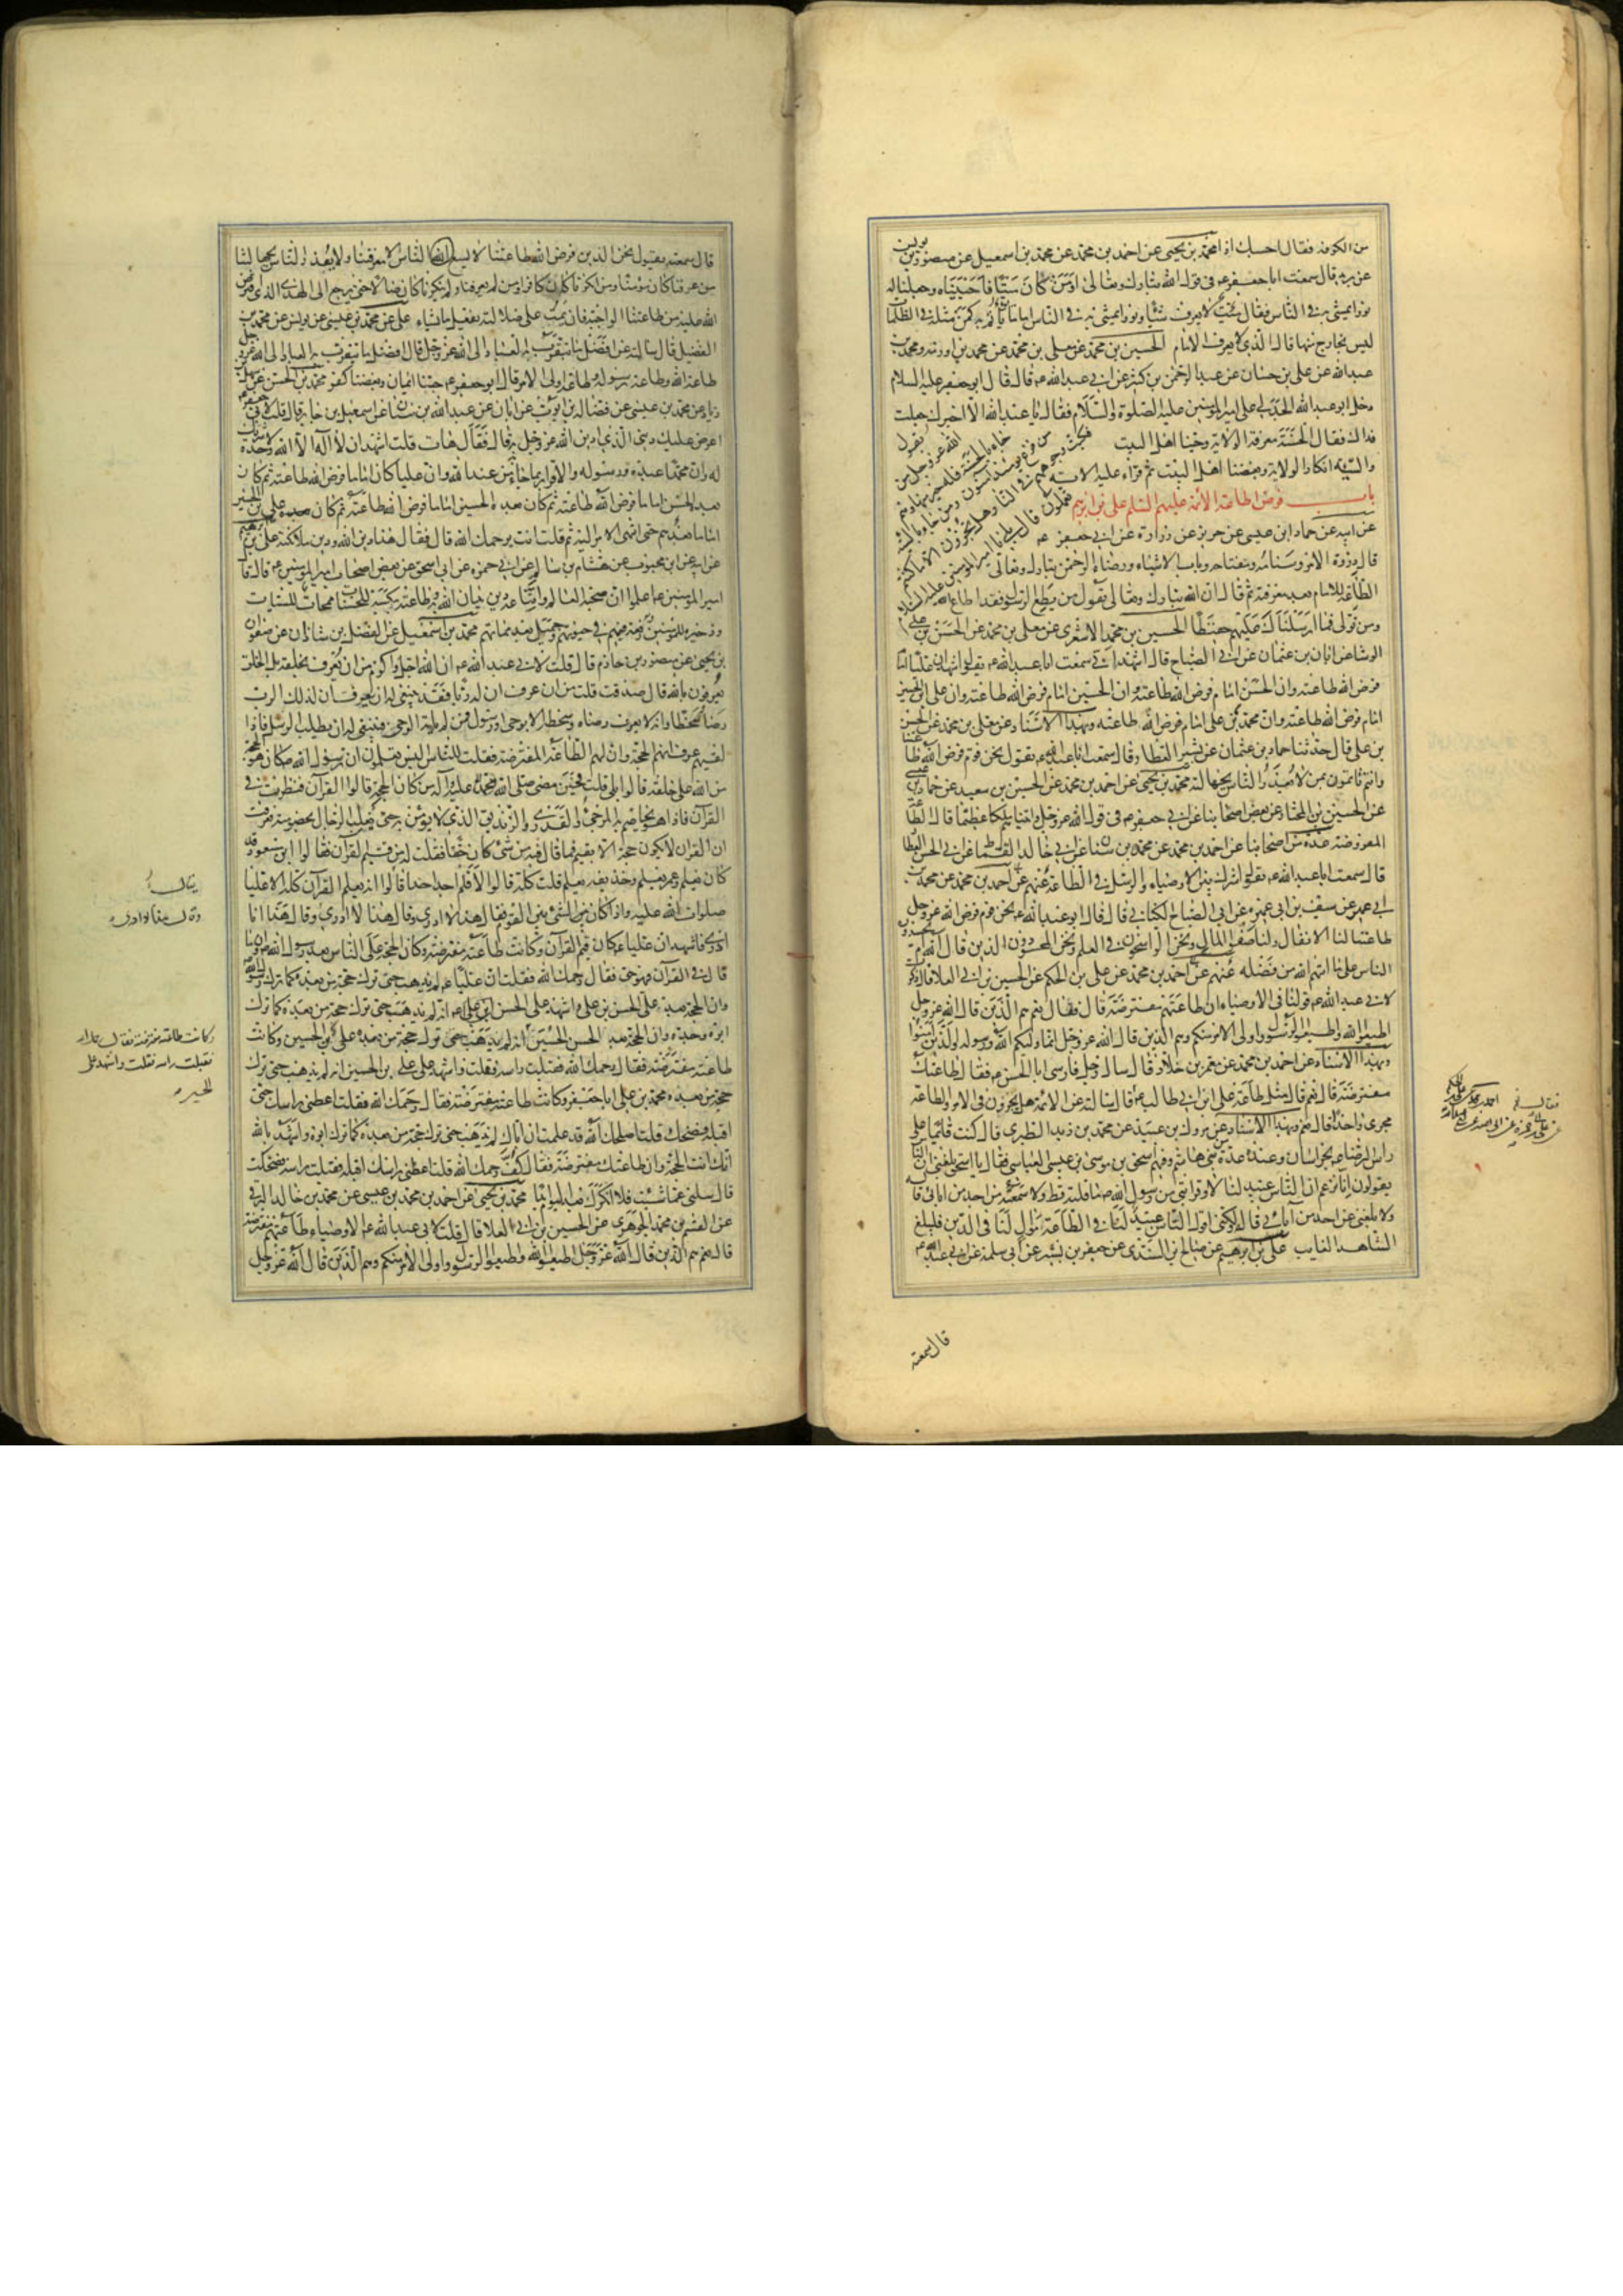 من الكوفة فقال احسبك اذا محمد بن يحيى عن احمد بن محمد عن محمد بن اسمعيل عن منصور بن يونس
عن بريد قال سمعت ابا جعفر ع في قول الله تبارك وتعالى اومن كان ميتا فاحييناه وجعلنا له
نورا يمشي به في الناس فقال ميت لا يعرف شيئا ونورا يمشي به في الناس اماما يأتم به كمن مثله في الظلمات
ليس بخارج منها قال الذي لا يعرف الامام الحسين بن محمد عن معلى بن محمد عن محمد بن اورمة ومحمد بن
عبد الله عن علي بن حسان عن عبد الرحمن بن كثير عن ابي عبد الله ع قال قال ابو جعفر عليه السلام
دخل ابو عبد الله الجدلي على امير المؤمنين عليه الصلوة والسلام فقال يا عبد الله الا اخبرك
جعلت فداك فقال الحسنة معرفة الولاية وحبنا اهل البيت
والسيئة انكار الولاية وبغضنا اهل البيت ثم قراء عليه الاية
باب فرض اطاعة الائمة عليهم السلم علي بن ابرهيم
عن ابيه عن حماد بن عيسى عن حريز عن زرارة عن ابي جعفر ع
قال ذروة الامر وسنامه ومفتاحه وباب الاشياء ورضاء الرحمن تبارك وتعالى
الطاعة للامام بعد معرفته ثم قال ان الله تبارك وتعالى يقول من يطع الرسول فقد اطاع الله
ومن تولى فما ارسلناك عليهم حفيظا الحسين بن محمد الاشعري عن معلى بن محمد عن الحسن بن علي
الوشا عن ابان بن عثمان عن ابي الصباح قال اشهد اني سمعت ابا عبد الله ع يقول اشهد ان عليا امام
فرض الله طاعته وان الحسن امام فرض الله طاعته وان الحسين امام فرض الله طاعته وان علي بن الحسين
امام فرض الله طاعته وان محمد بن علي امام فرض الله طاعته وبهذا الاسناد عن معلى بن محمد عن الحسن
بن علي قال حدثنا حماد بن عثمان عن بشير العطار قال سمعت ابا عبد الله ع يقول نحن قوم فرض الله طاعتنا
وانتم تأتمون بمن لا يعذر الناس بجهالته محمد بن يحيى عن احمد بن محمد عن الحسين بن سعيد عن حماد بن عيسى
عن الحسين بن المختار عن بعض اصحابنا عن ابي جعفر ع في قول الله عز وجل واتيناهم ملكا عظيما قال الطاعة
المفروضة عدة من اصحابنا عن احمد بن محمد عن محمد بن سنان عن ابي خالد القماط عن ابي الحسن العطار
قال سمعت ابا عبد الله ع يقول اشرك بين الاوصياء والرسل في الطاعة عنهم عن احمد بن محمد عن محمد بن
ابي عمير عن سيف بن ابي عميرة عن ابي الصباح الكناني قال قال ابو عبد الله ع نحن قوم فرض الله عز وجل
طاعتنا لنا الانفال ولنا صفو المال ونحن الراسخون في العلم ونحن المحسودون الذين قال الله ام يحسدون
الناس على ما اتيهم الله من فضله عنهم عن احمد بن محمد عن علي بن الحكم عن الحسين بن ابي العلا قال ذكرت
لابي عبد الله ع قولنا في الاوصياء ان طاعتهم مفترضة قال فقال نعم هم الذين قال الله عز وجل
اطيعوا الله واطيعوا الرسول واولى الامر منكم وهم الذين قال الله عز وجل انما وليكم الله ورسوله والذين امنوا
وبهذا الاسناد عن احمد بن محمد عن معمر بن خلاد قال سال رجل فارسي ابا الحسن ع فقال طاعتك
مفترضة قال نعم قال مثل طاعة علي ابن ابي طالب ع قال سالته عن الائمة هل يجرون في الامر والطاعة
مجرى واحدا قال نعم وبهذا الاسناد عن مروك بن عبيد عن محمد بن زيد الطبري قال كنت قائما على
راس الرضا ع بخراسان وعنده عدة من بني هاشم وفيهم اسحق بن موسى بن عيسى العباسي فقال يا اسحق بلغني ان الناس
يقولون انا نزعم ان الناس عبيد لنا لا وقرابتي من رسول الله ص ما قلته قط ولا سمعته من احد من ابائي قاله
ولا بلغني عن احد من آبائي قاله ولكني اقول الناس عبيد لنا في الطاعة موال لنا في الدين فليبلغ
الشاهد الغايب علي بن ابرهيم عن صالح بن السندي عن جعفر بن بشير عن ابي سلمة عن ابي عبد الله ع
قال سمعته
قال سمعته يقول نحن الذين فرض الله طاعتنا لا يسع الناس الا معرفتنا ولا يعذر الناس بجهالتنا
من عرفنا كان مؤمنا ومن انكرنا كان كافرا ومن لم يعرفنا ولم ينكرنا كان ضالا حتى يرجع الى الهدى الذي افترض
الله عليه من طاعتنا الواجبة فان يمت على ضلالته يفعل الله ما يشاء علي عن محمد بن عيسى عن يونس عن محمد بن
الفضيل قال سالته عن افضل ما يتقرب به العباد الى الله عز وجل قال افضل ما يتقرب به العباد الى الله عز وجل
طاعة الله وطاعة رسوله وطاعة اولى الامر قال ابو جعفر ع حبنا ايمان وبغضنا كفر محمد بن الحسن عن سهل بن
زياد عن محمد بن عيسى عن فضالة بن ايوب عن ابان عن عبد الله بن سنان عن اسمعيل بن جابر قال قلت لابي جعفر ع
اعرض عليك ديني الذي ادين الله عز وجل به قال فقال هات قلت اشهد ان لا آله الا الله وحده لا شريك
له وان محمدا عبده ورسوله والاقرار بما جاء من عند الله وان عليا كان اماما فرض الله طاعته ثم كان
بعده الحسن اماما فرض الله طاعته ثم كان بعده الحسين اماما فرض الله طاعته ثم كان بعده علي بن الحسين
اماما حتى انتهى الامر اليه ثم قلت انت يرحمك الله قال فقال هذا دين الله ودين ملائكته علي بن ابرهيم
عن ابيه عن ابن محبوب عن هشام بن سالم عن ابي حمزة عن ابي اسحق عن بعض اصحاب امير المؤمنين ع قال قال
امير المؤمنين ع اعلموا ان صحبة العالم واتباعه دين يدان الله به وطاعته مكسبة للحسنات ممحاة للسيئات
وذخيرة للمؤمنين ورفعة فيهم في حيوتهم وجميل بعد مماتهم محمد بن اسمعيل عن الفضل بن شاذان عن صفوان
بن يحيى عن منصور بن حازم قال قلت لابي عبد الله ع ان الله اجل واكرم من ان يعرف بخلقه بل الخلق
يعرفون بالله قال صدقت قلت من ان عرف ان له ربا فقد ينبغي له ان يعرف ان لذلك الرب
رضا وسخطا وانه لا يعرف رضاه وسخطه الا بوحي او رسول فمن لم ياته الوحي فينبغي له ان يطلب الرسل فاذا
لقيهم عرف انهم الحجة وان لهم الطاعة المفترضة فقلت للناس اليس تعلمون ان رسول الله ص كان هو الحجة
من الله على خلقه قالوا بلى قلت فحين مضى صلى الله عليه وآله من كان الحجة قالوا القرآن فنظرت في
القرآن فاذا هو يخاصم به المرجئ والقدري والزنديق الذي لا يؤمن به حتى يغلب الرجال بخصومته فعرفت
ان القران لا يكون حجة الا بقيم فما قال فيه من شئ كان حقا فقلت لهم من قيم القرآن فقالوا ابن مسعود قد
كان يعلم وعمر يعلم وحذيفة يعلم قلت كله قالوا لا فلم اجد احدا قالوا انه يعلم القرآن كله الا عليا
صلوات الله عليه واذا كان الشئ بين القوم فقال هذا لا ادري وقال هذا لا ادري وقال هذا انا
ادري فاشهد ان عليا ع كان قيم القرآن وكانت طاعته مفترضة وكان الحجة على الناس بعد رسول الله ص وان ما
قال في القرآن فهو حق فقال رحمك الله فقلت ان عليا ع لم يذهب حتى ترك حجة من بعده كما ترك رسول الله
وان الحجة بعد علي الحسن بن علي واشهد على الحسن انه لم يذهب حتى ترك حجة من بعده كما ترك
ابوه وجده وان الحجة بعد الحسن الحسين انه لم يذهب حتى ترك حجة من بعده علي بن الحسين وكانت
طاعته مفترضة فقال رحمك الله فقبلت راسه فقلت واشهد على علي بن الحسين انه لم يذهب حتى ترك
حجة من بعده محمد بن علي ابا جعفر وكانت طاعته مفترضة فقال رحمك الله فقلت اعطني راسك حتى
اقبله فضحك قلت اصلحك الله قد علمت ان اباك لم يذهب حتى ترك حجة من بعده كما ترك ابوه واشهد بالله
انك انت الحجة وان طاعتك مفترضة فقال كف رحمك الله قلت اعطني راسك اقبله فقبلت راسه فضحك
قال سلني عما شئت فلا انكرك بعد اليوم ابدا محمد بن يحيى عن احمد بن محمد بن عيسى عن محمد بن خالد البرقي
عن القسم بن محمد الجوهري عن الحسين بن ابي العلا قال قلت لابي عبد الله ع الاوصياء طاعتهم مفترضة
قال نعم هم الذين قال الله عز وجل اطيعوا الله واطيعوا الرسول واولى الامر منكم وهم الذين قال الله عز وجل